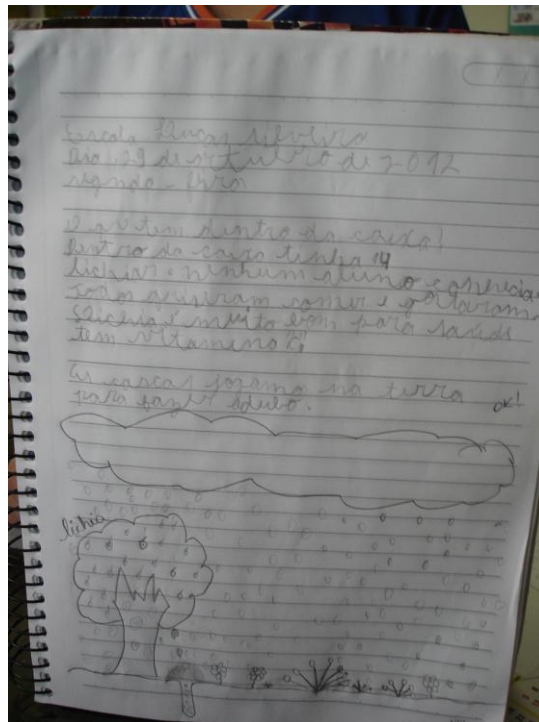 Escola Lucas Silveira
Dia 29 de outubro de 2012
segunda-fera
O qê tem dentro da caixa!
Dentro da caixa tinha 14
lichias e ninhum aluno conhecia
Todos comer e gostaram
é muito bom para saúde
tem vitamina C
As cascas jogamo na terra
para fazer adubo.
ok!
lichia